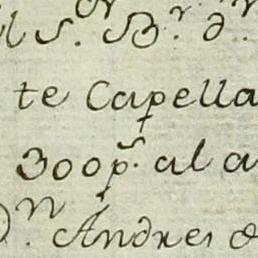 l S.ᵒʳ B.ʳ d.ⁿ
te Capella
300p.ˢ al a
D.ⁿ Andres d